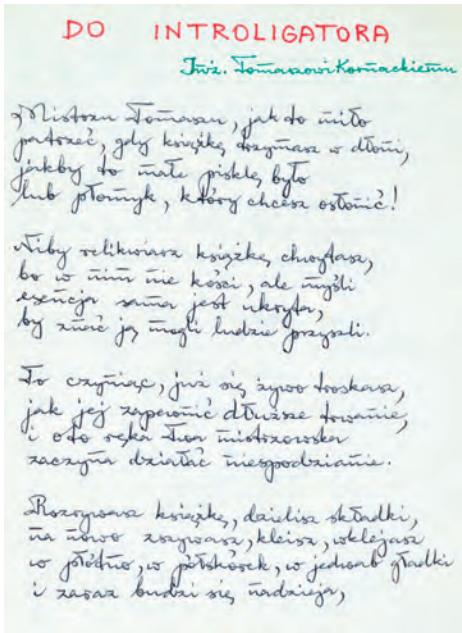 DO INTROLIGATORA
Inż. Tomaszowi Kornackiemu
Mistrzu Tomaszu, jak to miło
patrzeć, gdy książkę trzymasz w dłoni,
jakby to małe pisklę było
lub płomyk, który chcesz osłonić!
Niby relikwiarz książkę chwytasz,
bo w nim nie kości, ale myśli
esencja sama jest ukryta,
by znać ją mogli ludzie przyszli.
To czyniąc, już się żywo troskasz,
jak jej zapewnić dłuższe trwanie,
i oto ręka Twa mistrzowska
zaczyna działać niespodzianie.
Rozrywasz książkę, dzielisz składki,
na nowo zszywasz, kleisz, wklejasz
w płótno, w półskórek, w jedwab gładki
i zaraz budzi się nadzieja,